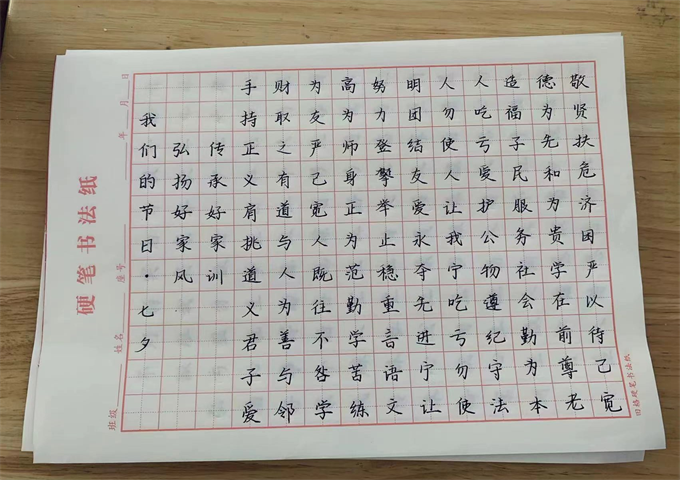 敬贤扶危济困严以待己宽
德为先和为贵学在前尊老
造福子民服务社会勤为本
人吃亏爱护公物遵纪守法
人勿使人让我宁吃亏勿使
明团结友爱永夺先进宁让
努力登攀举止稳重言语文
高为师身正为范勤学苦练
为友严己宽人既往不咎学
财取之有道与人为善与邻
手持正义肩挑道义君子爱
传承好家训
弘扬好家风
我们的节日·七夕
硬笔书法纸
班级 姓名 座号 年 月 日
田格硬笔书法纸